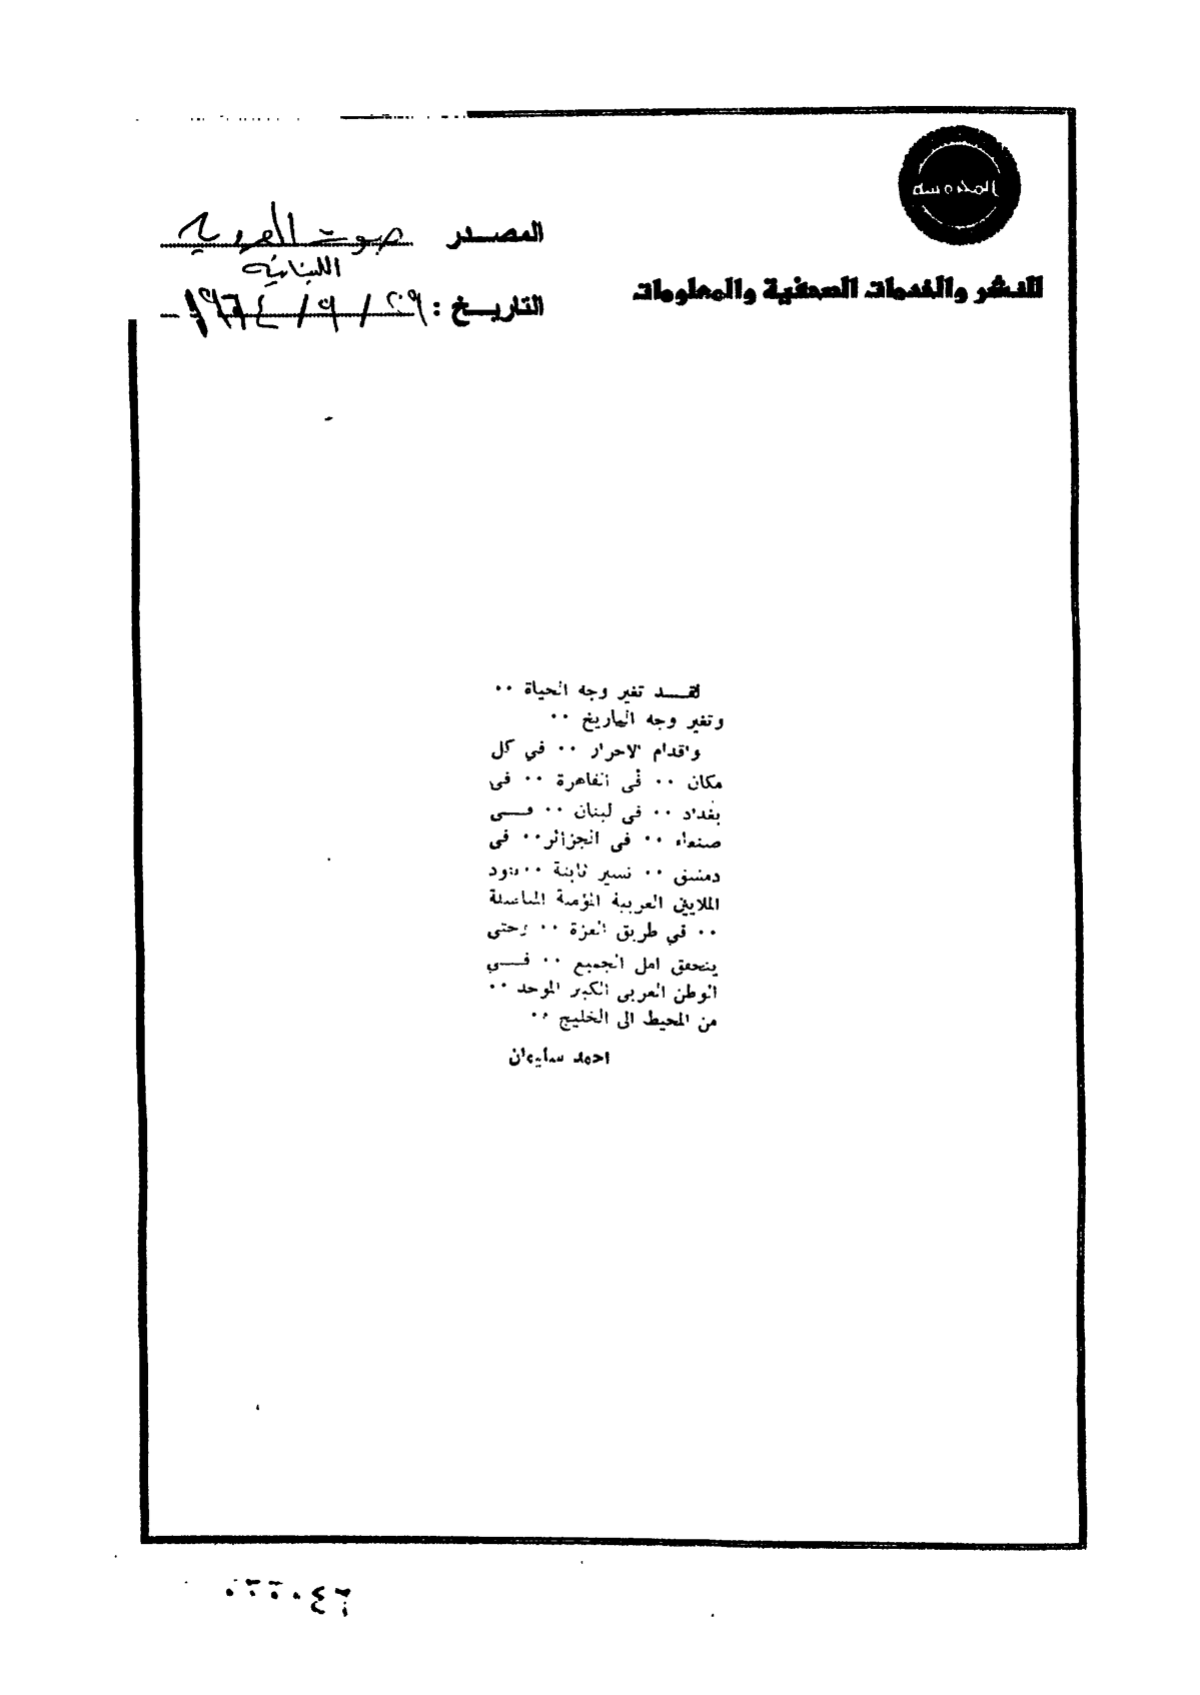 المصدر صوت العروبة
اللبنانية
للنشر والخدمات الصحفية والمعلومات
التاريخ : ٢٩ / ٩ / ١٩٦٤
لقـــد تغير وجه الحياة ..
وتغير وجه التاريخ ..
واقدام الاحرار .. في كل
مكان .. في القاهرة .. في
بغداد .. في لبنان .. فـــي
صنعاء .. في الجزائر .. في
دمشق .. تسير ثابتة .. تقود
الملايين العربية المؤمنة المناضلة
.. في طريق العزة .. وحتى
يتحقق امل الجميع .. فـــي
الوطن العربي الكبير الموحد ..
من المحيط الى الخليج ..
احمد سليمان